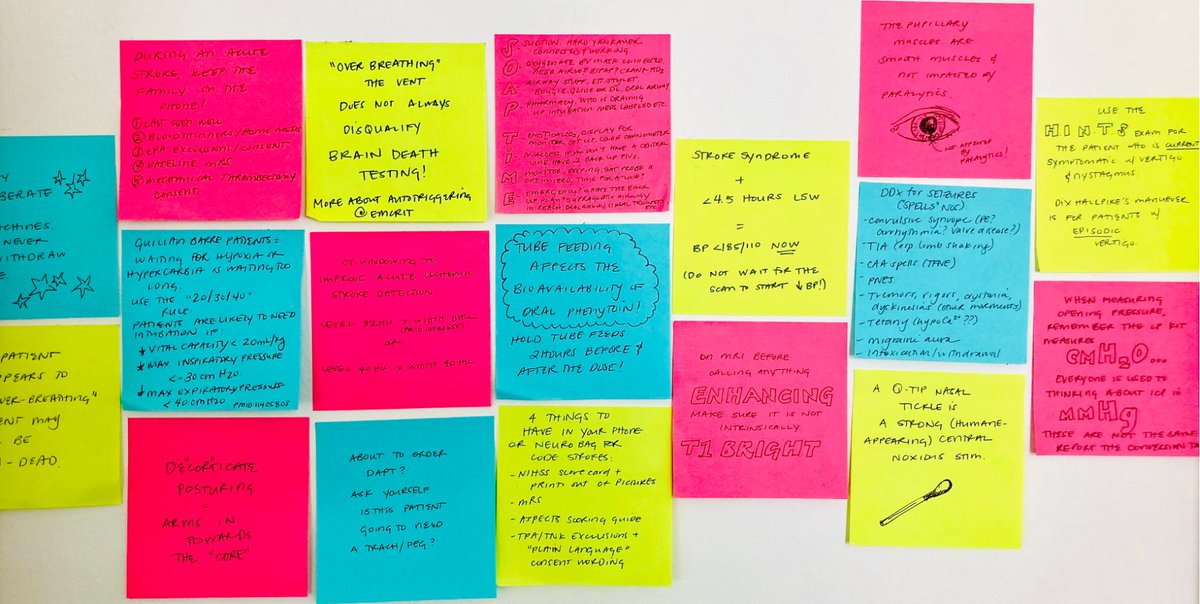 Y
BERATE
ACHINES.
NEVER
THDRAW
E
PATIENT
PPEARS TO
VER-BREATHING"
ENT MAY
BE
N-DEAD.
DURING AN ACUTE
STROKE KEEP THE
FAMILY ON THE
PHONE!
① LAST SEEN WELL
② BLOOD THINNERS/HOME MEDS
③ tPA EXCLUSIONS/CONSENT
④ BASELINE mRS
⑤ MECHANICAL THROMBECTOMY
CONSENT
GUILLAN BARRE PATIENTS =
WAITING FOR HYPOXIA OR
HYPERCARBIA IS WAITING TOO
LONG.
USE THE "20/30/40"
RULE
PATIENTS ARE LIKELY TO NEED
INTUBATION IF:
VITAL CAPACITY < 20ml/kg
MAX INSPIRATORY PRESSURE
< -30 cmH2O
MAX EXPIRATORY PRESSURE
< 40 cmH2O PMID: 11405803
DE"COR"TICATE
POSTURING
=
ARMS IN
TOWARDS
THE "CORE"
"OVER BREATHING"
THE VENT
DOES NOT ALWAYS
DISQUALIFY
BRAIN DEATH
TESTING!
MORE ABOUT AUTOTRIGGERING
@EMCRIT
CT WINDOWING TO
IMPROVE ACUTE ISCHEMIC
STROKE DETECTION
LEVEL 32HU X WIDTH 8HU
OR
LEVEL 40 HU X WIDTH 40 HU
ABOUT TO ORDER
DAPT?
ASK YOURSELF
IS THIS PATIENT
GOING TO NEED
A TRACH/PEG?
S - SUCTION. HARD YANKAUER
CONNECTED & WORKING
O - OXYGENATE BV MASK CONNECTED.
NEED AIRVO? BIPAP? CRANK FIO2
A - AIRWAY STUFF. ETT STYLET
BOUGIE, GLIDE OR DL, ORAL AIRWAY
P - PHARMACY. WHO IS DRAWING
UP INTUBATION MEDS. LABELED ETC.
T - END TIDAL CO2, DISPLAY FOR
MONITOR SET UP. COLOR CAPNOMETER
I - IV ACCESS. IF YOU DON'T HAVE A CENTRAL
LINE, HAVE 2 BACK UP PIVS.
M - MONITOR, BEEPING, SAT PROBE IS
OPTIMIZED, TIME FOR A LINE?
E - EMERGENCY? WHAT'S THE BACK
UP PLAN? SUPRAGLOTTIC AIRWAY
IN REACH, ORAL AIRWAY, NASAL TRUMPETS
ETC
TUBE FEEDING
AFFECTS THE
BIOAVAILABILITY OF
ORAL PHENYTOIN!
HOLD TUBE FEEDS
2 HOURS BEFORE &
AFTER THE DOSE!
4 THINGS TO
HAVE IN YOUR PHONE
OR NEURO BAG FOR
CODE STROKES:
- NIHSS SCORE CARD +
PRINT OUT OF PICTURES
- mRS
- ASPECTS SCORING GUIDE
- TPA/TNK EXCLUSIONS +
"PLAIN LANGUAGE"
CONSENT WORDING
STROKE SYNDROME
+
<4.5 HOURS LSW
=
BP <185/110 NOW
(DO NOT WAIT FOR THE
SCAN TO START ↓ BP!)
ON MRI BEFORE
CALLING ANYTHING
ENHANCING
MAKE SURE IT IS NOT
INTRINSICALLY
T1 BRIGHT
THE PUPILLARY
MUSCLES ARE
SMOOTH MUSCLES &
NOT IMPACTED BY
PARALYTICS.
NOT AFFECTED BY
PARALYTICS!
DDx for SEIZURES
("SPELLS" NOS)
- convulsive syncope (PE?
arrhythmia? valve disease?)
- TIA (esp limb shaking)
- CAA spells (TFNE)
- PNES
- Tremors, rigors, dystonia,
dyskinesias (other movements)
- Tetany (hypoCa2+??)
- migraine aura
- intoxication/withdrawal
A Q-TIP NASAL
TICKLE IS
A STRONG (HUMANE-
APPEARING) CENTRAL
NOXIOUS STIM.
USE THE
HINTS EXAM FOR
THE PATIENT WHO IS CURRENTLY
SYMPTOMATIC W/ VERTIGO
& NYSTAGMUS.
DIX HALLPIKE'S MANEUVER
IS FOR PATIENTS W/
EPISODIC
VERTIGO.
WHEN MEASURING
OPENING PRESSURE,
REMEMBER THE LP KIT
MEASURES
CMH2O...
EVERYONE IS USED TO
THINKING ABOUT ICP IN
MMHg
THESE ARE NOT THE SAME.
REPORT THE CONVERSION